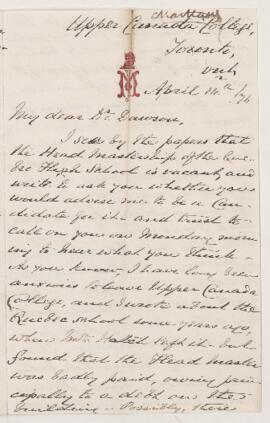 Upper Canada College,
Toronto,
Ont.
April 14th /76
My dear Dr. Dawson,
I see by the papers that
the Head Mastership of the Que-
bec High School is vacant, and
write to ask you whether you
would advise me to be a Can-
didate for it - and trust to
call on you on Monday morn-
ing to hear what you think -
As you know, I have long been
anxious to leave Upper Canada
College, and I wrote about the
Quebec School some years ago,
when Mr. left it - but
found that the Head Master
was badly paid, owing prin-
cipally to a debt on the
building - Possibly, there